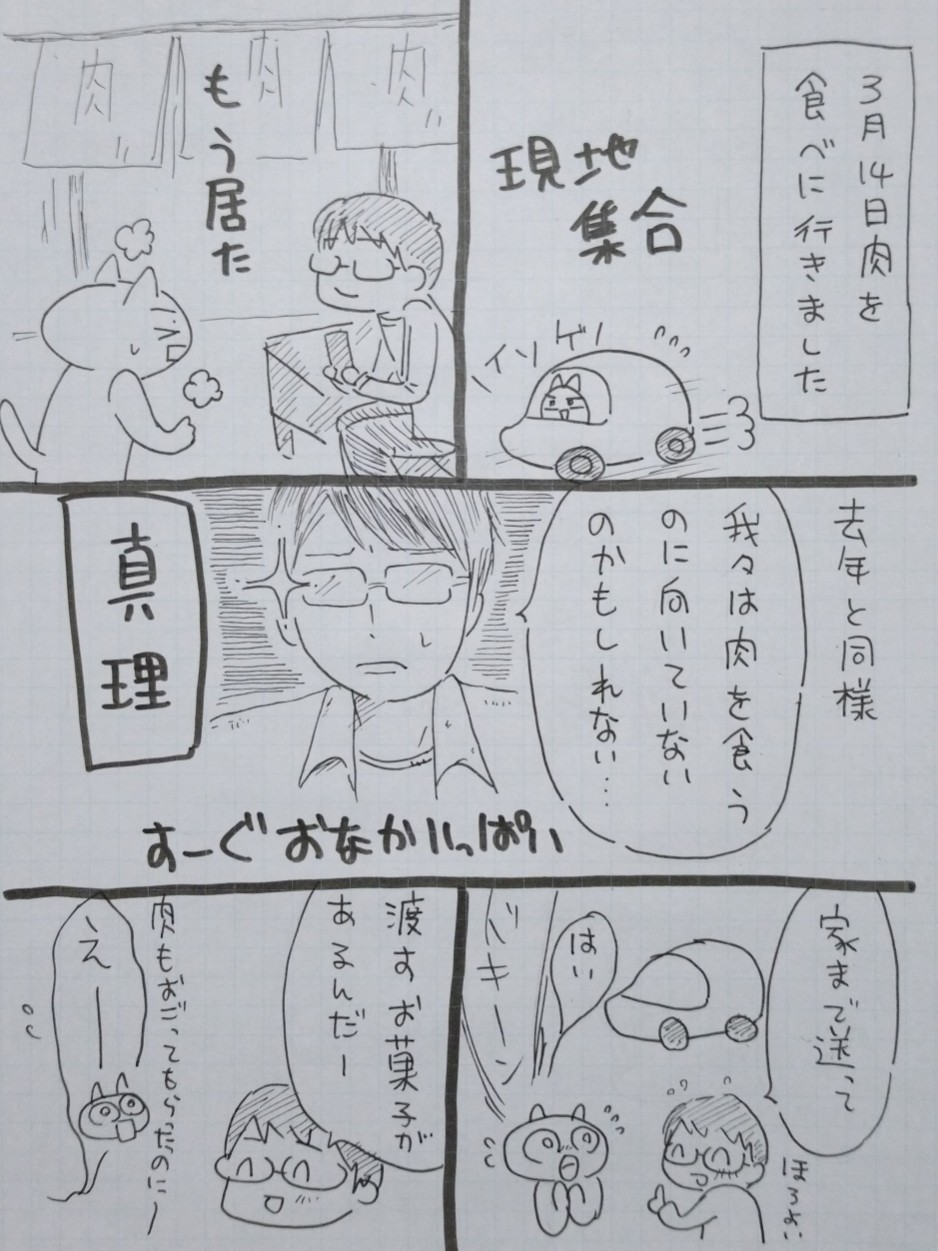 3月14日肉を
食べに行きました
現地
集合
イソ
ゲソ
肉
肉
肉
もう居た
去年と同様
我々は肉を食う
のに向いていない
のかもしれない…
真理
すーぐおなかいっぱい
家まで送って
ほろよい
はい
ドキーン
渡すお菓子が
あるんだー
肉もおごってもらったのにー
えー